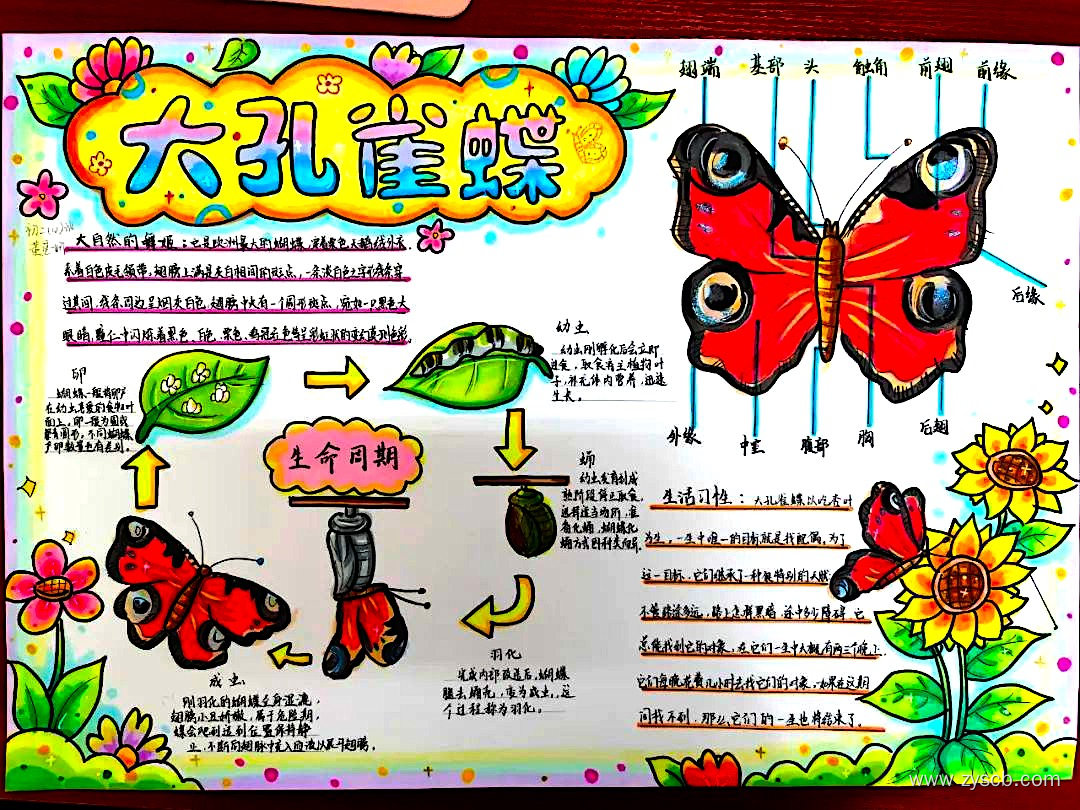 大孔雀蝶
翅端 基部 头 触角 前翅 前缘
后缘
外缘 中室 腹部 胸 后翅
大自然的舞姬：它是欧洲最大的蝴蝶，穿着栗色天鹅绒外衣，
系着白色皮毛领带，翅膀上满是灰白相间的斑点，一条淡白色之字形线条穿
过其间，线条周边呈烟灰白色，翅膀中央有一个圆形斑点，宛如一只黑色大
眼睛，瞳仁中闪烁着黑色、白色、栗色、鸡冠花色等呈彩虹状的变幻莫测色彩。
卵
蝴蝶一般将卵产
在幼虫喜爱的食物叶
面上，卵一般为圆或
椭圆形，不同蝴蝶
产卵数量也有差别。
幼虫
幼虫刚孵化后会立即
进食，取食寄主植物叶
子，补充体内营养，迅速
生长。
生命周期
蛹
幼虫发育到成
熟阶段停止取食，
选择适当场所，准
备化蛹，蝴蝶化
蛹方式因种类而异。
羽化
完成内部改造后，蝴蝶
脱去蛹壳，变为成虫，这
个过程称为羽化。
成虫
刚羽化的蝴蝶全身湿漉，
翅膀小且娇嫩，属于危险期，
蝶会爬到适到位置保持静
止，不断向翅脉中充入血液以展开翅膀。
生活习性：大孔雀蝶以吃杏叶
为生。一生中唯一的目标就是找配偶，为了
这一目标，它们继承了一种很特别的天赋
不管路途多远，路上怎样黑暗，途中多少障碍，它
总能找到它的对象。在它们一生中大概有两三个晚上，
它们每晚花费几小时去找它们的对象。如果在这期
间找不到，那么它们的一生也将结束了。
www.zyscb.com